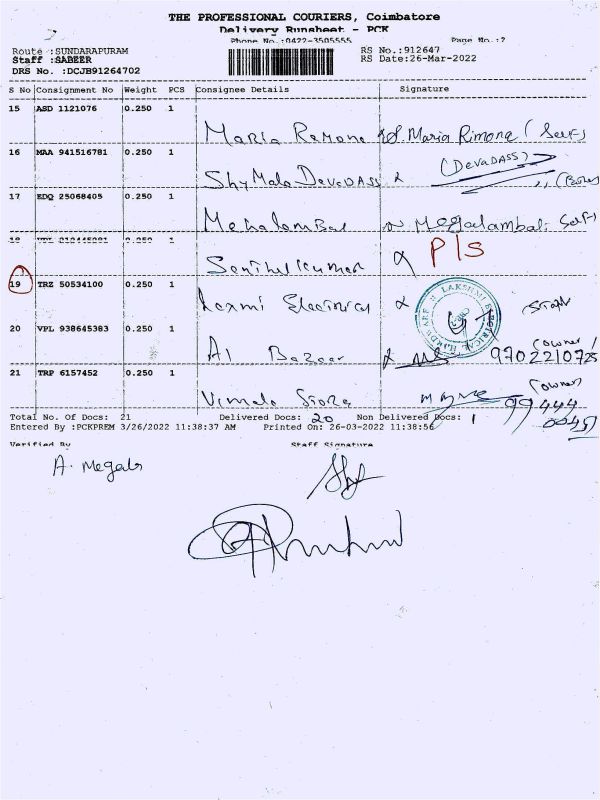 THE PROFESSIONAL COURIERS, Coimbatore
Delivery Runsheet - PCK
Phone No.:0422-3505555 Page No.:2
Route :SUNDARAPURAM RS No.:912647
Staff :SABEER RS Date:26-Mar-2022
DRS No. :DCJB91264702
S No Consignment No Weight PCS Consignee Details Signature
15 ASD 1121076 0.250 1
Maria Remone S. Maria Rimone (Self)
16 MAA 941516781 0.250 1
(DevaDASS)
Shymala DevaDASS
17 EDQ 25068405 0.250 1
Mehalambal Megalambal. Self)
18 0.250 1
Senthil Kumar P/S
19 TRZ 50534100 0.250 1
Laxmi Electrical
LAKSHMI ELECTRICAL HARDWARE
20 VPL 938645383 0.250 1
(owner)
Al Bazaar 9702210725
21 TRP 6157452 0.250 1
(owner)
Vimala Store 99444
00451
Total No. Of Docs: 21 Delivered Docs: 20 Non Delivered Docs: 1
Entered By :PCKPREM 3/26/2022 11:38:37 AM Printed On: 26-03-2022 11:38:56
Verified By Staff Signature
A. Megala